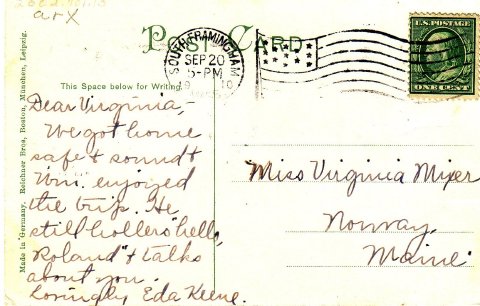 arx
POST CARD
SOUTH FRAMINGHAM
SEP 20
5-PM
10
U.S. POSTAGE
ONE CENT
This Space below for Writing.
Made in Germany. Reichner Bros, Boston, München, Leipzig.
Dear Virginia,-
We got home
safe & sound &
Wm. enjoyed
the trip. He
still hollers "hello,
Roland" & talks
about you.
Lovingly Eda Keene.
Miss Virginia Mixer
Norway,
Maine